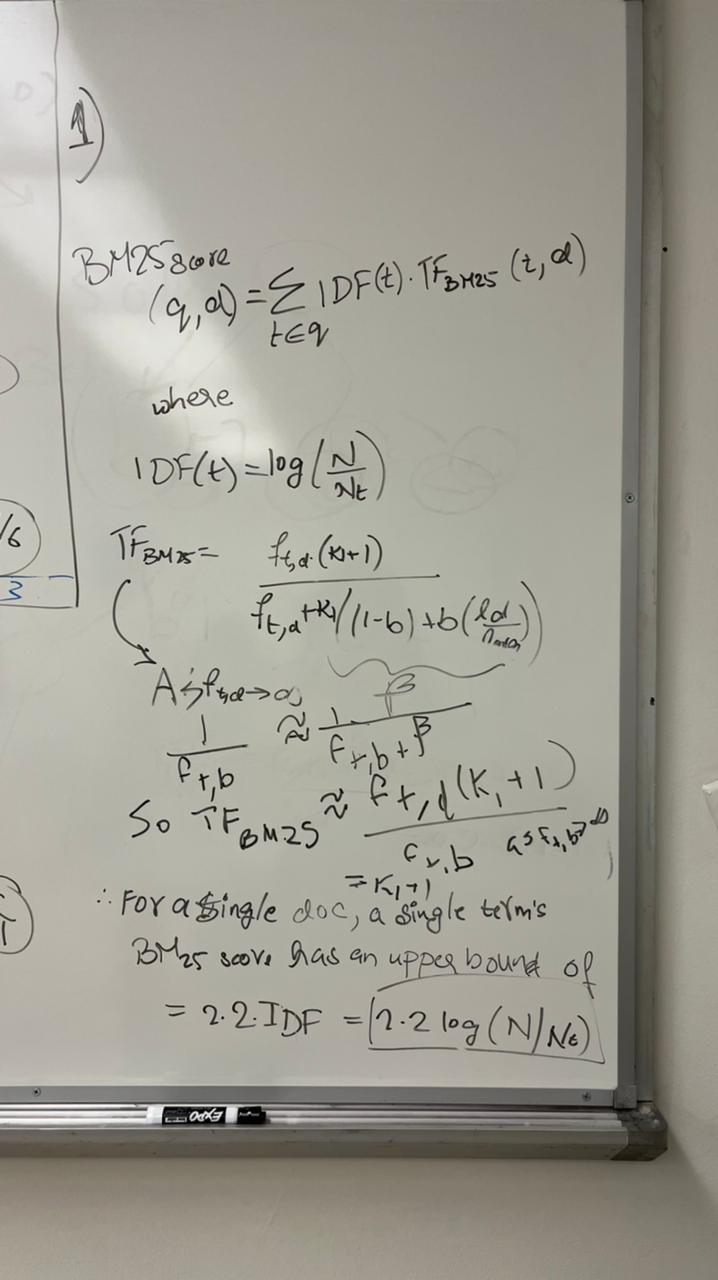 1)
BM25 score
(q,d) = Σ IDF(t)·TF_BM25 (t,d)
t∈q
where
IDF(t) = log(N/Nt)
TF_BM25 = f_t,d·(K1+1)
f_t,d + K1((1-b)+b(ld/
β
As f_t,d → ∞
1/f_t,b ≈ 1/(f_t,b + β)
So TF_BM25 ≈ f_t,d(K1+1)
f_t,b as f_t,b → ∞
= K1+1
∴ For a single doc, a single term's
BM25 score has an upper bound of
= 2.2.IDF = 2.2 log(N/Nt)
EXPO
/6
3